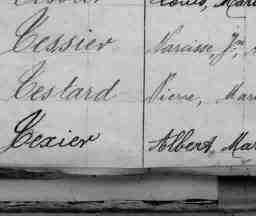 Louis, Mari
Tessier Narcisse, Jm
Testard Pierre, Mari
Texier Albert, Mar